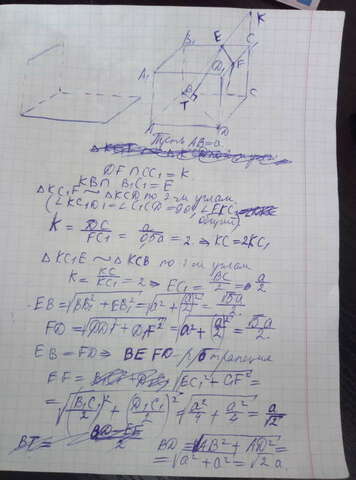 K
B₁ E C₁
A₁ D₁ F
B C
T
A D
Пусть AB=a
DF∩CC₁=K
KB∩B₁C₁=E
ΔKC₁F ~ ΔKCD по 2-м углам
(∠KC₁D₁=∠C₁CD=90°, общий)
K = DC/FC₁ = a/0,5a = 2 ⇒ KC=2KC₁
ΔKC₁E ~ ΔKCB по 2-м углам
K = KC/KC₁ = 2 ⇒ EC₁ = BC/2 = a/2
EB=√(BB₁²+EB₁²)=√(a²+a²/2)=√5a/2
FD=√(DD₁²+D₁F²)=√(a²+a²/2)=√5a/2
EB=FD ⇒ BEFD - р/б трапеция
EF = √(EC₁²+CF²) =
= √((B₁C₁/2)²+(D₁C₁/2)²) = √(a²/4+a²/4) = a/√2
BT= BD-EF/2 BD=√(AB²+AD²)=
=√(a²+a²)=√2 a.